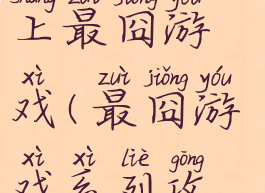 shàng zuì jiǒng yóu
上最囧游
xì zuì jiǒng yóu
戏(最囧游
xì xì liè gōng
戏系列攻